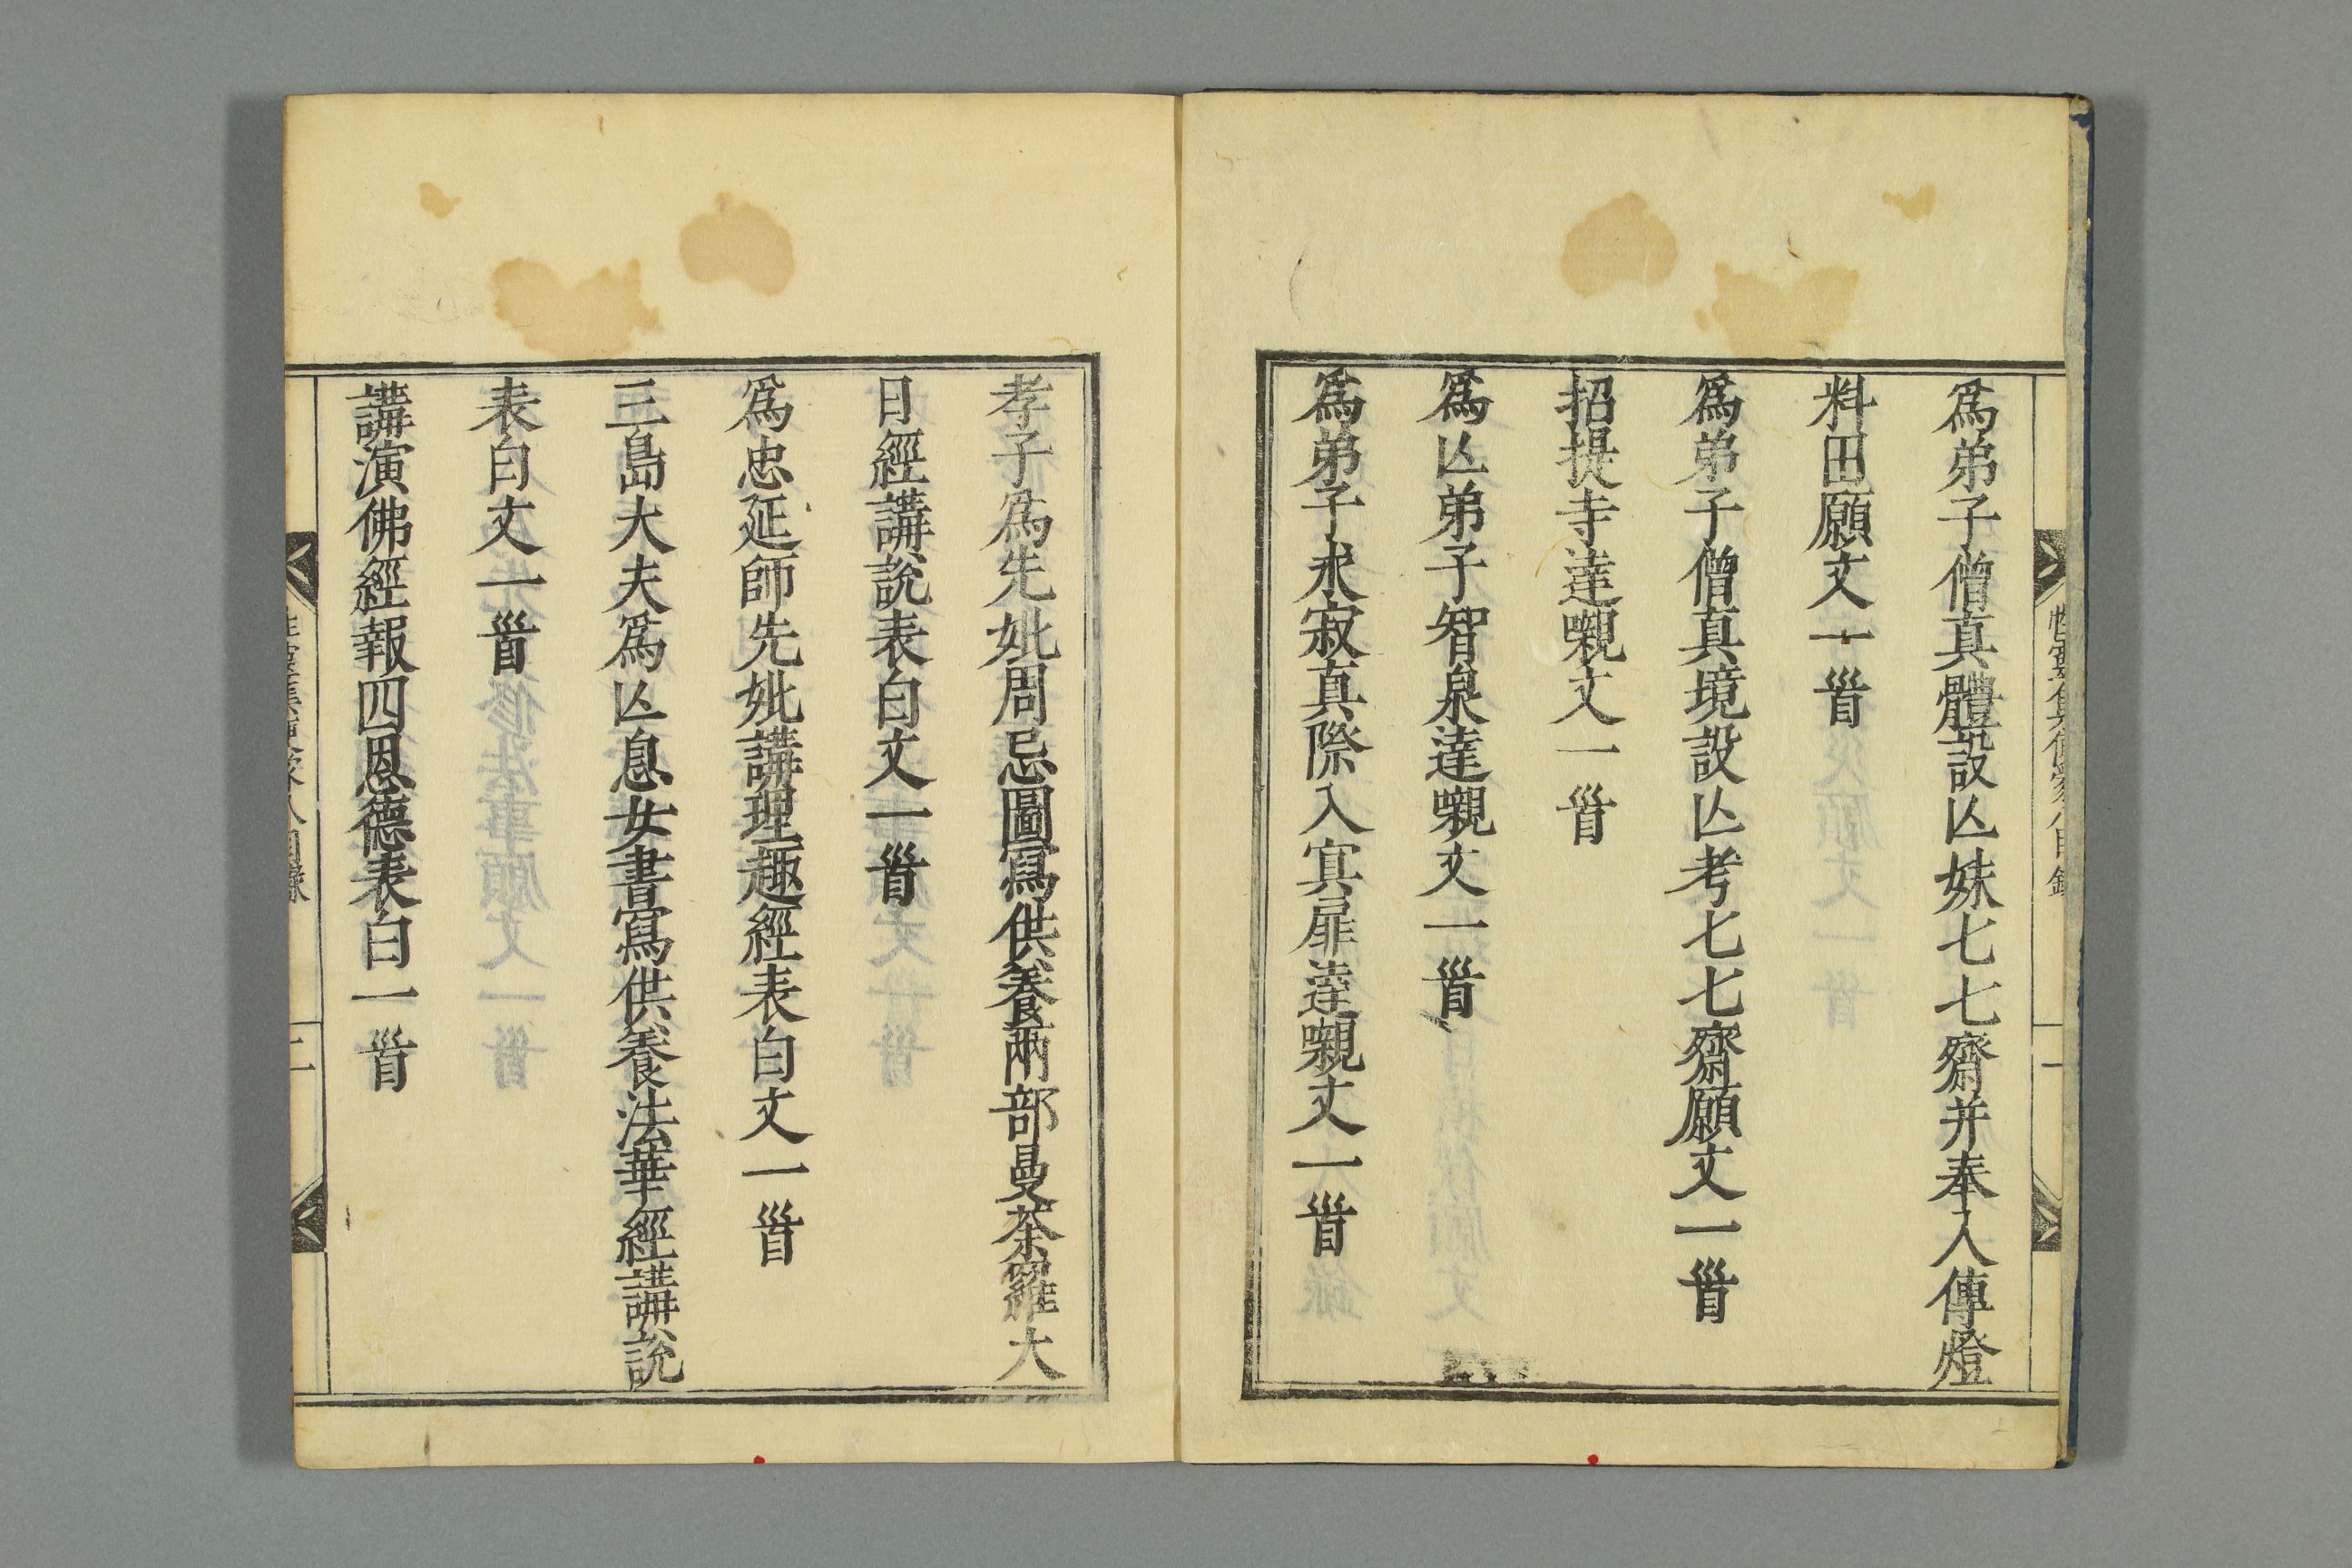 爲弟子僧真體設亾妹七七齋并奉入傳燈
料田願文一首
爲弟子僧真境設亾考七七齋願文一首
招提寺達嚫文一首
爲亾弟子智泉達嚫文一首
爲弟子求寂真際入冥扉達嚫文一首
孝子爲先妣周忌圖寫供養兩部曼荼羅大
日經講說表白文一首
爲忠延師先妣講理趣經表白文一首
三島大夫爲亾息女書寫供養法華經講說
表白文一首
講演佛經報四恩德表白一首
二